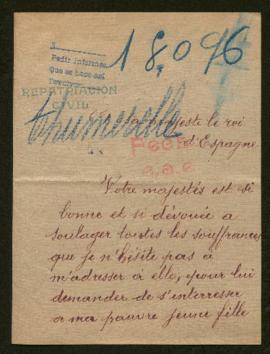 18.096
Pedir informes
Que se hace así
REPATRIACION
CIVIL
majesté le roi
d'Espagne
Votre majestés est si
bonne et si dévouée a
soulager toutes les souffrances
que je n'hésite pas à
m'adresser à elle, pour lui
demander de s'interresser
a ma pauvre jeune fille